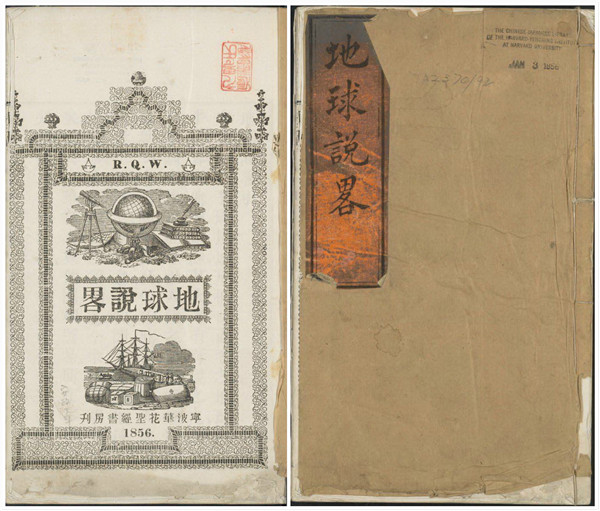 R.Q.W.
地球說畧
寧波華花聖經書房刊
1856.
地球說畧
THE CHINESE-JAPANESE LIBRARY
OF THE HARVARD-YENCHING INSTITUTE
AT HARVARD UNIVERSITY
JAN 3 1956